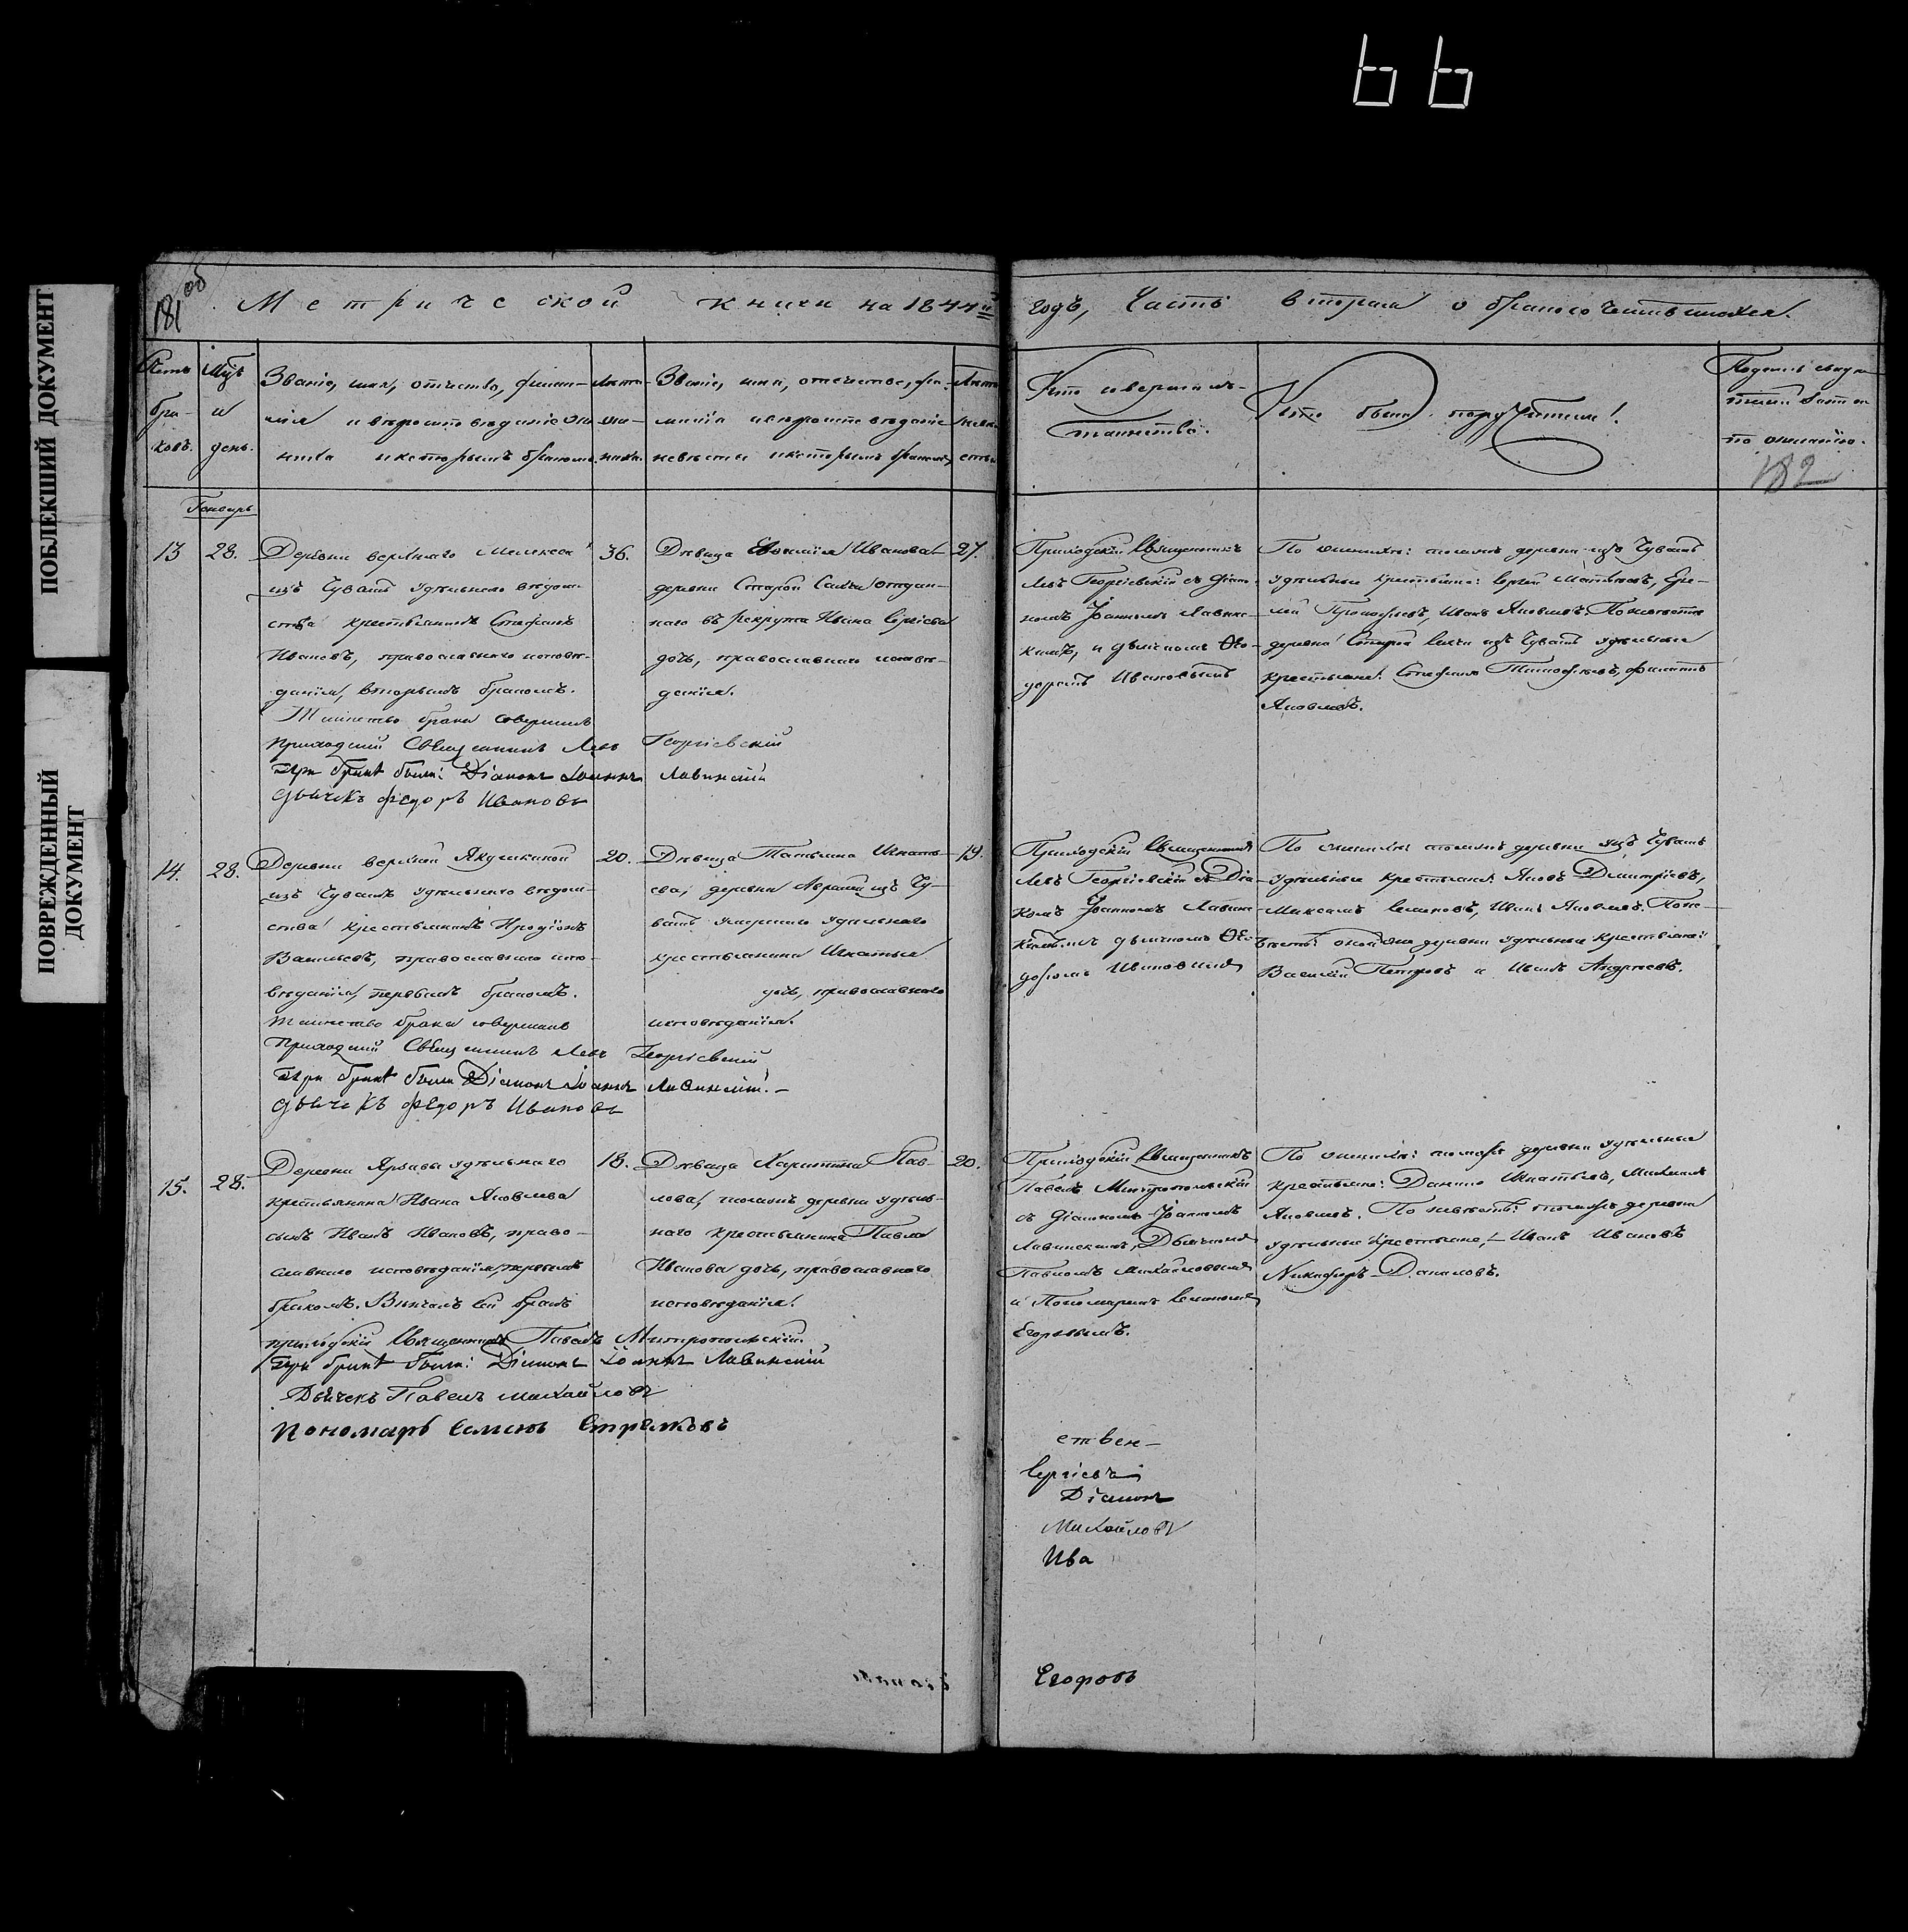 ПОБЛЕКШИЙ ДОКУМЕНТ
ПОВРЕЖДЕННЫЙ
ДОКУМЕНТ
181 об
Метрической книги на 1844й
годъ, Часть вторая о бракосочетавшихся.
бра-
ковъ.
и
день.
Званіе, имя, отчество, фами-
лія и вѣроисповѣданіе же
ниха и которымъ бракомъ.
Лѣта
же-
ниха.
Званіе, имя, отечество, фа-
милія и вѣроисповѣданіе
невѣсты и которымъ бракомъ
Лѣта
невѣ
сты
Кто совершалъ
таинство.
Кто были поручители.
182
Генварь
13
28.
Деревни верхняго Мелекеса
изъ Чувашъ удѣльнаго вѣдом-
ства крестьянинъ Стефанъ
Ивановъ, православнаго исповѣ-
данія, вторымъ бракомъ.
Таинство брака совершилъ
приходскій Священникъ Левъ Георгіевскій
При бракѣ были: Діаконъ Іоаннъ Лавинскій
Дьячекъ Федоръ Ивановъ
36.
Дѣвица Иванова
деревни Старой отдан-
наго въ рекрута Ивана Сергѣева
дочь, православнаго исповѣ-
данія.
27.
Приходскій Священникъ
Левъ Георгіевскій съ Діако-
номъ Іоанномъ Лавинс-
кимъ, и дьячкомъ Ѳео-
доромъ Ивановымъ
По женихѣ: тоя жъ деревни изъ Чувашъ
удѣльные крестьяне: Сергѣй Матвѣевъ, Ере-
мѣй Прокофьевъ, Иванъ Яковлевъ. По невѣстѣ
деревни Старой изъ Чувашъ удѣльные
крестьяне: Стефанъ Тимофѣевъ, Филиппъ
Яковлевъ.
14.
28.
Деревни верхней Якушкиной
изъ Чувашъ удѣльнаго вѣдом-
ства крестьянинъ Иродіонъ
Васильевъ, православнаго испо-
вѣданія, первымъ бракомъ.
Таинство брака совершилъ
Приходскій Священникъ Левъ Георгіевскій
При бракѣ были Діаконъ Іоаннъ Лавинскій.
Дьячекъ Федоръ Ивановъ
20.
Дѣвица Татьяна Игнать-
ева, деревни изъ Чу-
вашъ умершаго удѣльнаго
крестьянина Игнатья
дочь, православнаго
исповѣданія.
19.
Приходскій Священникъ
Левъ Георгіевскій съ Діа-
кономъ Іоанномъ Лавинс-
кимъ дьячкомъ Ѳео-
доромъ Ивановымъ
По женихѣ: тоя жъ деревни изъ Чувашъ
удѣльные крестьяне: Яковъ Димитріевъ,
Максимъ Семеновъ, Иванъ Яковлевъ. По не-
вѣстѣ: деревни удѣльные крестьяне:
Василій Петровъ и Иванъ Андреевъ.
15.
28.
Деревни удѣльнаго
крестьянина Ивана Яковлева
сынъ Иванъ Ивановъ, право-
славнаго исповѣданія, первымъ
бракомъ. Вѣнчалъ сей бракъ
приходскій Священникъ Павелъ Митропольскій.
При бракѣ были: Діаконъ Іоаннъ Лавинскій
Дьячекъ Павелъ Михайловъ
Пономарь Семенъ
18.
Дѣвица Харитина Пав-
лова, тоя жъ деревни удѣль-
наго крестьянина Павла
Иванова дочь, православнаго
исповѣданія.
20.
Приходскій Священникъ
Павелъ Митропольскій
съ Діакономъ Іоанномъ
Лавинскимъ, Дьячкомъ
Павломъ Михайловымъ
и Пономаремъ Семеномъ
Егоровымъ.
По женихѣ: тоя жъ деревни удѣльные
крестьяне: Данило Игнатьевъ, Михаилъ
Яковлевъ. По невѣстѣ: тоя жъ деревни
удѣльные крестьяне, Иванъ Ивановъ
Никифоръ Даниловъ.
ствен-
Сергіевъ
Діаконъ
Михайловъ
Ива
Егоровъ